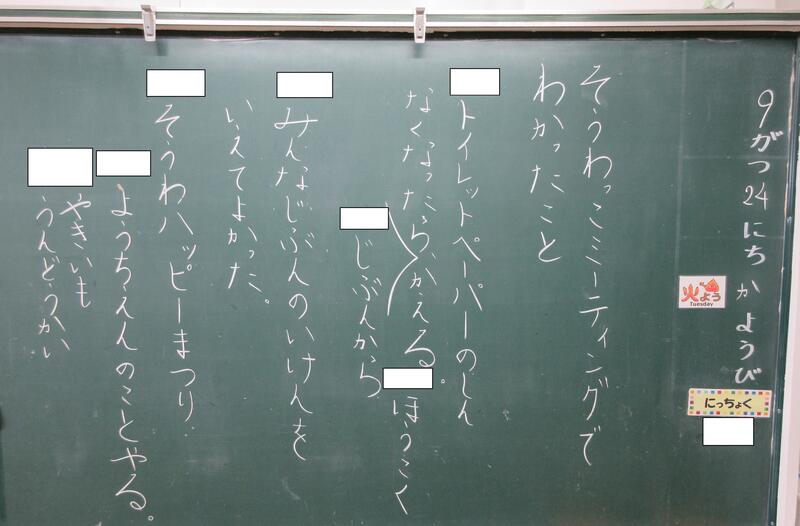 9がつ24にち かようび
火よう
Tuesday
にっちょく
そうわっこミーティングで
わかったこと
トイレットペーパーのしん
なくなったらかえる。
ほうこく
じぶんから
みんなじぶんのいけんを
いえてよかった。
そうわハッピーまつり
ようちえんのことやる。
やきいも
うんどうかい